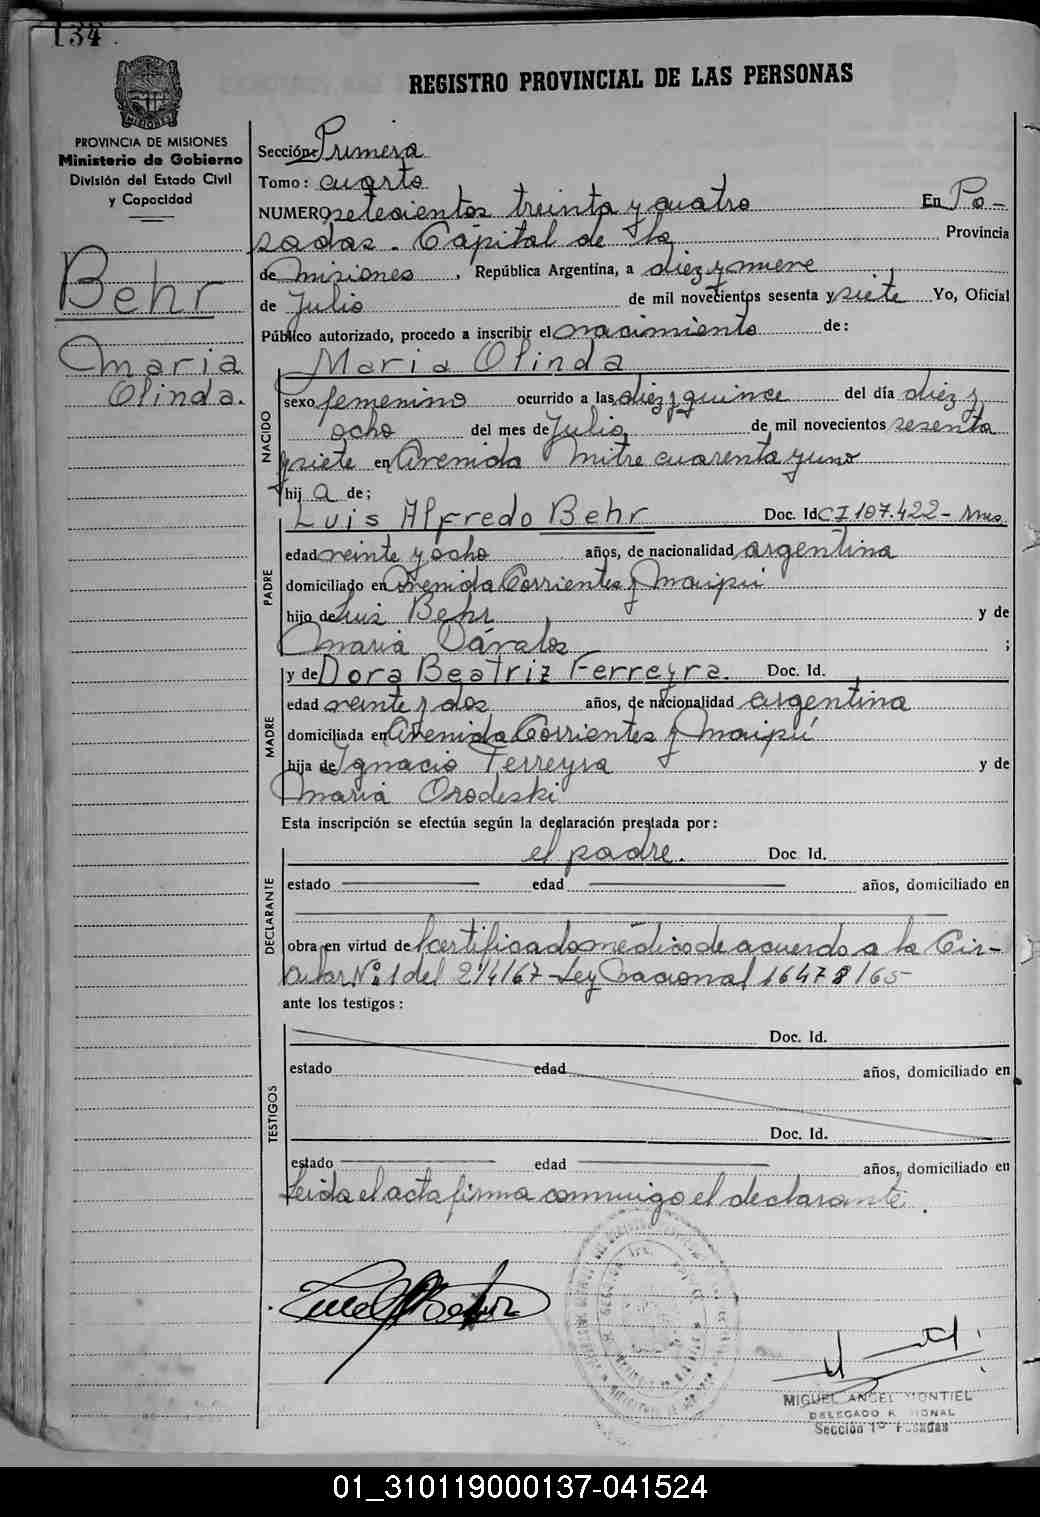 134
REGISTRO PROVINCIAL DE LAS PERSONAS
PROVINCIA DE MISIONES
Ministerio de Gobierno
División del Estado Civil
y Capacidad
Behr
Maria
Olinda.
Sección: Primera
Tomo: cuarto
NUMERO setecientos treinta y cuatro En Po-
sadas. Capital de la Provincia
de misiones, República Argentina, a diez y nueve
de Julio de mil novecientos sesenta y siete Yo, Oficial
Público autorizado, procedo a inscribir el nacimiento de:
Maria Olinda
NACIDO
sexo femenino ocurrido a las diez y quince del día diez y
ocho del mes de Julio de mil novecientos sesenta
y siete en Avenida Mitre cuarenta y uno
hij a de;
Luis Alfredo Behr Doc. Id CI 107.422- Mnes
PADRE
edad veinte y ocho años, de nacionalidad argentina
domiciliado en Avenida Corrientes y Maipú
hijo de Luis Behr y de
Maria Dávalos ;
y de Dora Beatriz Ferreyra. Doc. Id.
MADRE
edad veinte y dos años, de nacionalidad argentina
domiciliada en Avenida Corrientes y Maipú
hija de Ignacio Ferreyra y de
Maria Orodeski
Esta inscripción se efectúa según la declaración prestada por:
el padre. Doc. Id.
DECLARANTE
estado edad años, domiciliado en
obra en virtud de certificado médico de acuerdo a la Cir-
cular Nº 1 del 2/4/67 - Ley Nacional 16478/65
ante los testigos:
TESTIGOS
Doc. Id.
estado edad años, domiciliado en
Doc. Id.
estado edad años, domiciliado en
Leida el acta firma conmigo el declarante.
MIGUEL ANGEL MONTIEL
DELEGADO REGIONAL
Sección 1º Posadas
01_310119000137-041524